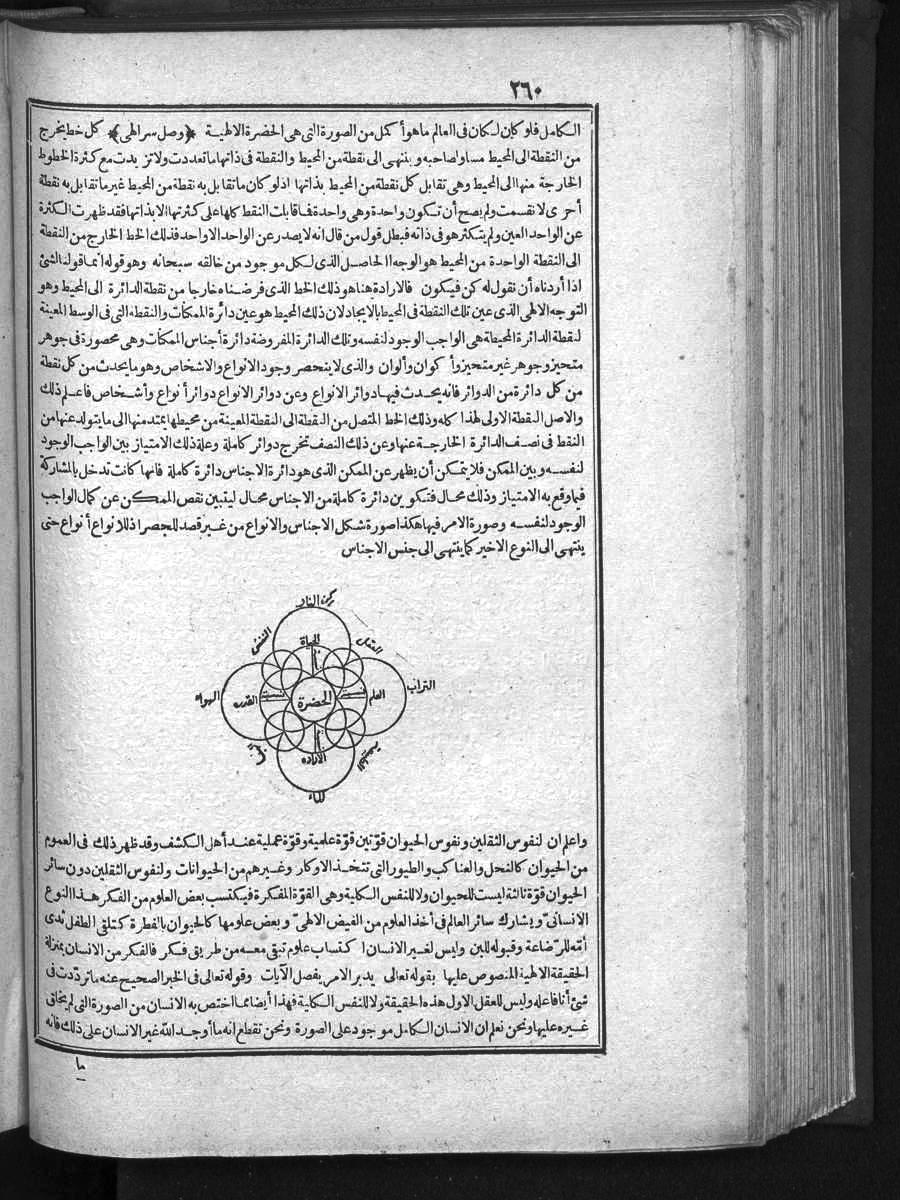 ٢٦٠
الكامل فلو كان لكان فى العالم ما هو أكمل من الصورة التى هى الحضرة الالهية ﴿وصل سر الهى﴾ كل خط يخرج
من النقطة الى المحيط مساو لصاحبه وينتهى الى نقطة من المحيط والنقطة فى ذاتها ما تعددت ولا تزيدت مع كثرة الخطوط
الخارجة منها الى المحيط وهى تقابل كل نقطة من المحيط بذاتها اذ لو كان ما تقابل به نقطة من المحيط غير ما تقابل به نقطة
أخرى لانقسمت ولم يصح أن تكون واحدة وهى واحدة فما قابلت النقط كلها على كثرتها الا بذاتها فقد ظهرت الكثرة
عن الواحد العين ولم يتكثر هو فى ذاته فبطل قول من قال انه لا يصدر عن الواحد الا واحد فذلك الخط الخارج من النقطة
الى النقطة الواحدة من المحيط هو الوجه الحاصل الذى لكل موجود من خالقه سبحانه وهو قوله انما قولنا لشئ
اذا أردناه أن نقول له كن فيكون فالارادة هنا هو ذلك الخط الذى فرضناه خارجا من نقطة الدائرة الى المحيط وهو
التوجه الالهى الذى عين تلك النقطة فى المحيط بالايجاد لان ذلك المحيط هو عين دائرة الممكنات والنقطة التى فى الوسط المعينة
لنقطة الدائرة المحيطة هى الواجب الوجود لنفسه وتلك الدائرة المفروضة دائرة أجناس الممكنات وهى محصورة فى جوهر
متحيز وجوهر غير متحيز وأكوان وألوان والذى لا ينحصر وجود الانواع والاشخاص وهو ما يحدث من كل نقطة
من كل دائرة من الدوائر فانه يحدث فيها دوائر الانواع وعن دوائر الانواع دوائر أنواع وأشخاص فاعلم ذلك
والاصل النقطة الاولى لهذا كله وذلك الخط المتصل من النقطة الى النقطة المعينة من محيطها يمتد منها الى ما يتولد عنها من
النقط فى نصف الدائرة الخارجة عنها وعن ذلك النصف تخرج دوائر كاملة وعلة ذلك الامتياز بين الواجب الوجود
لنفسه وبين الممكن فلا يتمكن أن يظهر عن الممكن الذى هو دائرة الاجناس دائرة كاملة فانها كانت تدخل بالمشاركة
فيما وقع به الامتياز وذلك محال فتكوين دائرة كاملة من الاجناس محال ليتبين نقص الممكن عن كمال الواجب
الوجود لنفسه وصورة الامر فيها هكذا صورة شكل الاجناس والانواع من غير قصد للحصر اذ للانواع أنواع حتى
ينتهى الى النوع الاخير كما ينتهى الى جنس الاجناس
ركن النار
النفس
العقل
الحياة
التراب
العلم
الحضرة
القدرة
الهواء
الطبيعة
الارادة
الماء
واعلم ان لنفوس الثقلين ونفوس الحيوان قوّتين قوّة علمية وقوّة عملية عند أهل الكشف وقد ظهر ذلك فى العموم
من الحيوان كالنحل والعناكب والطيور التى تتخذ الاوكار وغيرهم من الحيوانات ولنفوس الثقلين دون سائر
الحيوان قوّة ثالثة ليست للحيوان ولا للنفس الكلية وهى القوّة المفكرة فيكتسب بعض العلوم من الفكر هذا النوع
الانسانى ويشارك سائر العالم فى أخذ العلوم من الفيض الالهى وبعض علومها كالحيوان بالفطرة كتلقى الطفل ثدى
أمّه للرّضاعة وقبوله للبن وليس لغير الانسان اكتساب علوم تبقى معه من طريق فكر فالفكر من الانسان بمنزلة
الحقيقة الالهية المنصوص عليها بقوله تعالى يدبر الامر يفصل الآيات وقوله تعالى فى الخبر الصحيح عنه ما تردّدت فى
شئ أنا فاعله وليس للعقل الاول هذه الحقيقة ولا للنفس الكلية فهذا أيضا مما اختص به الانسان من الصورة التى لم يخلق
غيره عليها ونحن نعلم ان الانسان الكامل موجود على الصورة ونحن نقطع انه ما أوجد الله غير الانسان على ذلك فانه
ما